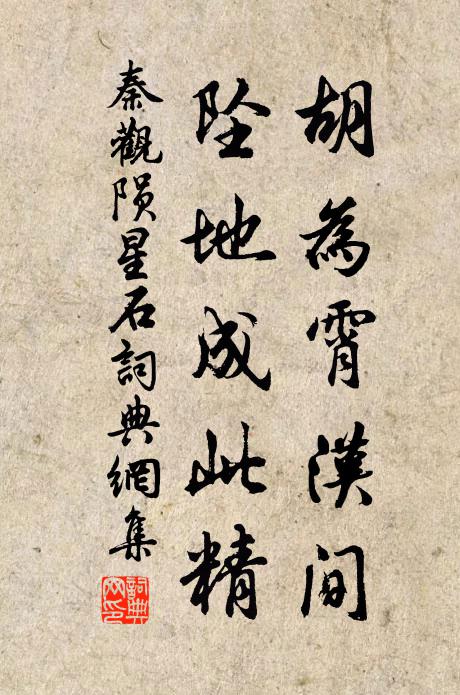 胡為霄漢間
坠地成此精
秦觀陨星石詞典網集
詞典網印